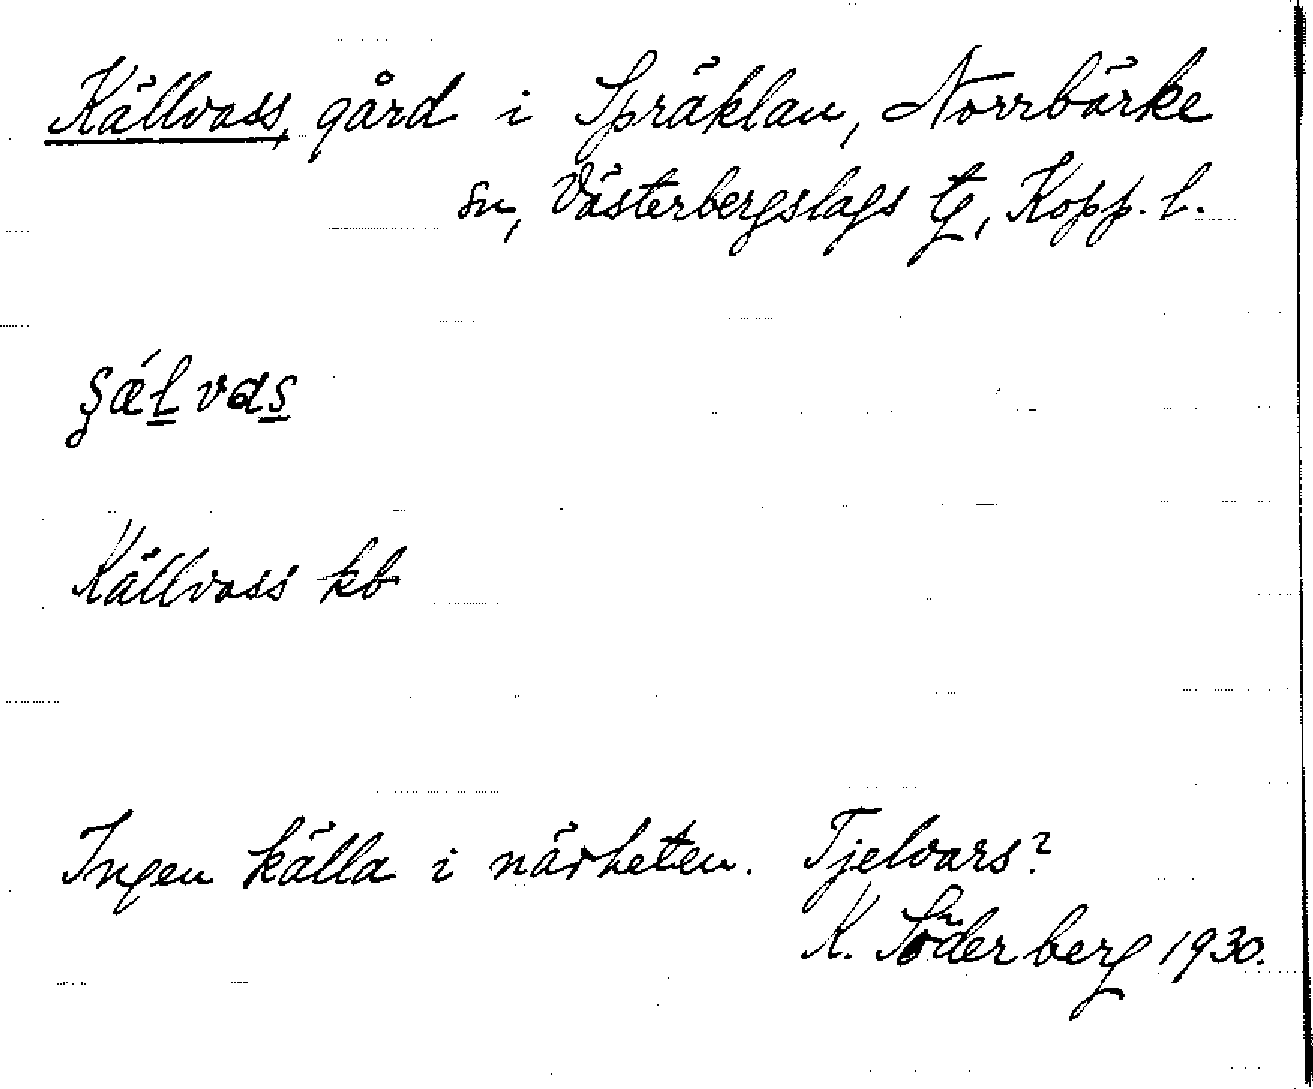 Källvass, gård i Spräklan, Norrbärke
sn, Västerbergslags tg, Kopp. l.
Källvass kb
Ingen källa i närheten. Tjelvars?
K. Söderberg 1930.